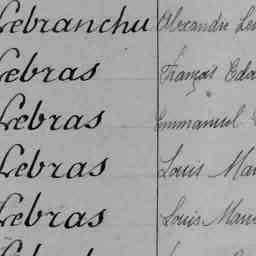 Lebranchu Alexandre
Lebras François
Lebras Emmanuel
Lebras Louis
Lebras Louis